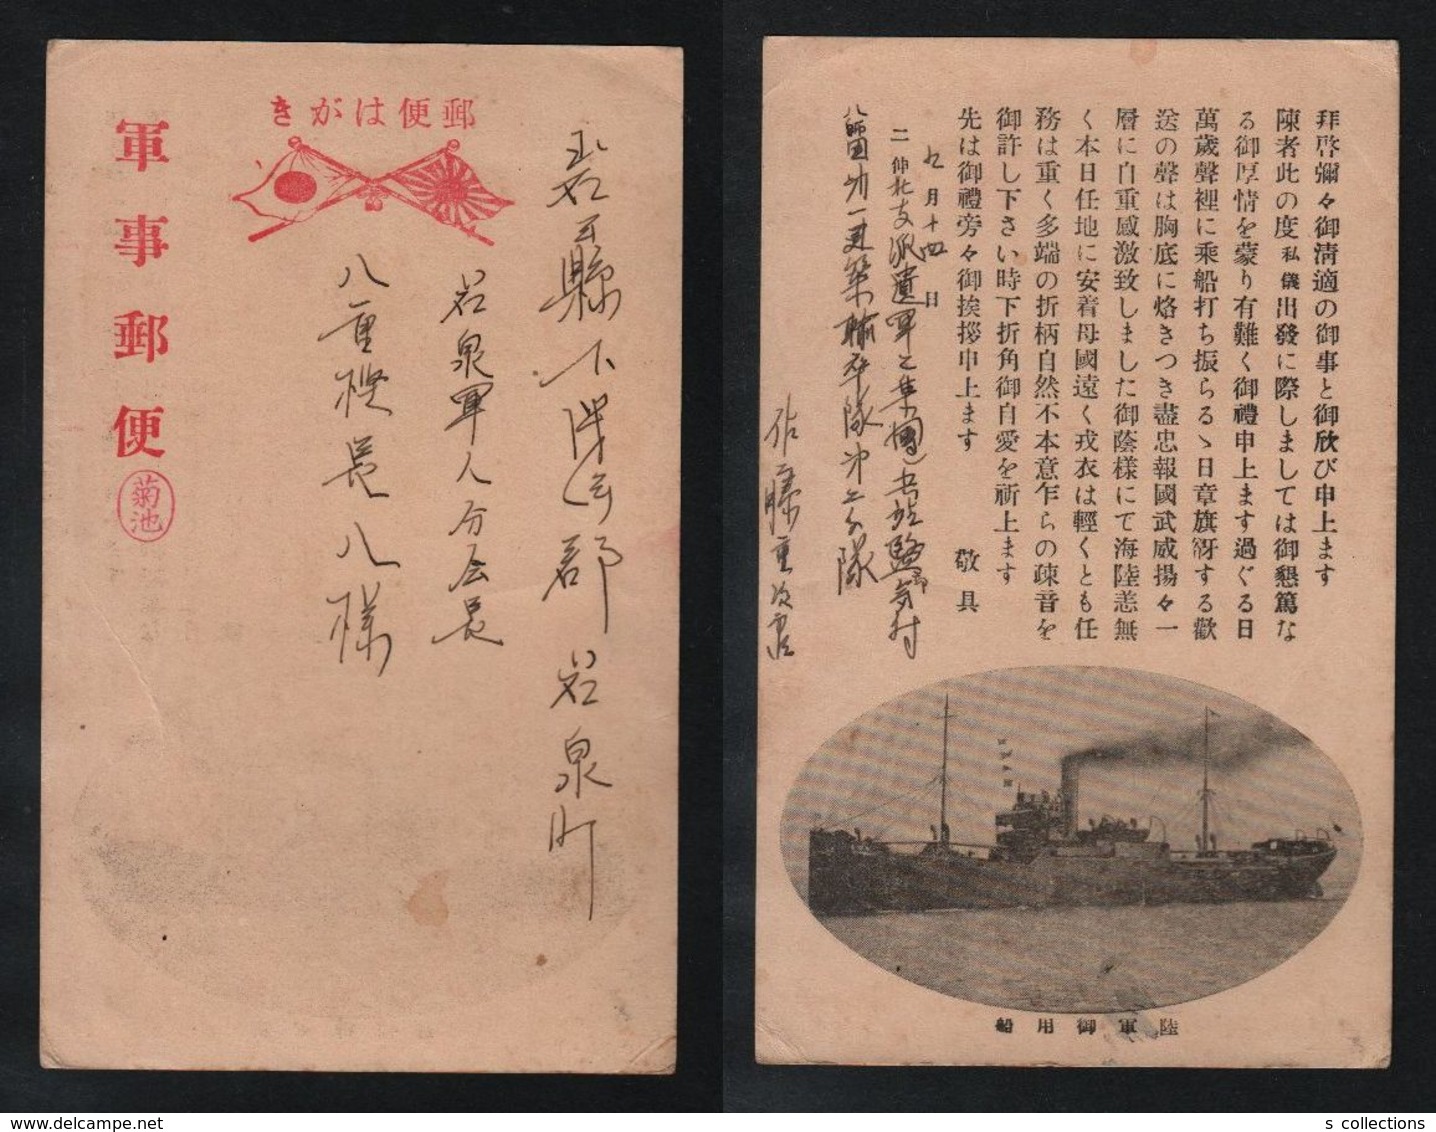 郵便はがき
軍事郵便
菊池
岩手縣下閉伊郡岩泉町
岩泉軍人分会長
八重樫長八様
拜啓彌々御淸適の御事と御欣び申上ます
陳者此の度私儀出發に際しましては御懇篤な
る御厚情を蒙り有難く御禮申上ます過ぐる日
萬歲聲裡に乘船打ち振らるゝ日章旗犽する歡
送の聲は胸底に烙きつき盡忠報國武威揚々一
層に自重感激致しました御蔭樣にて海陸恙無
く本日任地に安着母國遠く戎衣は輕くとも任
務は重く多端の折柄自然不本意乍らの疎音を
御許し下さい時下折角御自愛を祈上ます
先は御禮旁々御挨拶申上ます
敬具
九月十四日
北支派遣軍
佐藤重
陸軍御用船
s collections